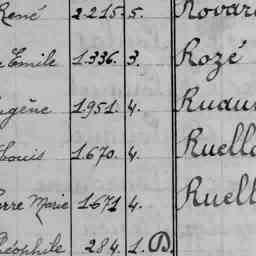 René 2215. 5. Rovar
Emile 1.336. 3. Rozé
ugène 1.951. 4. Ruau
Louis 1.670. 4. Ruell
erre Marie 1.671 4. Ruell
héophile 284. 1. D.